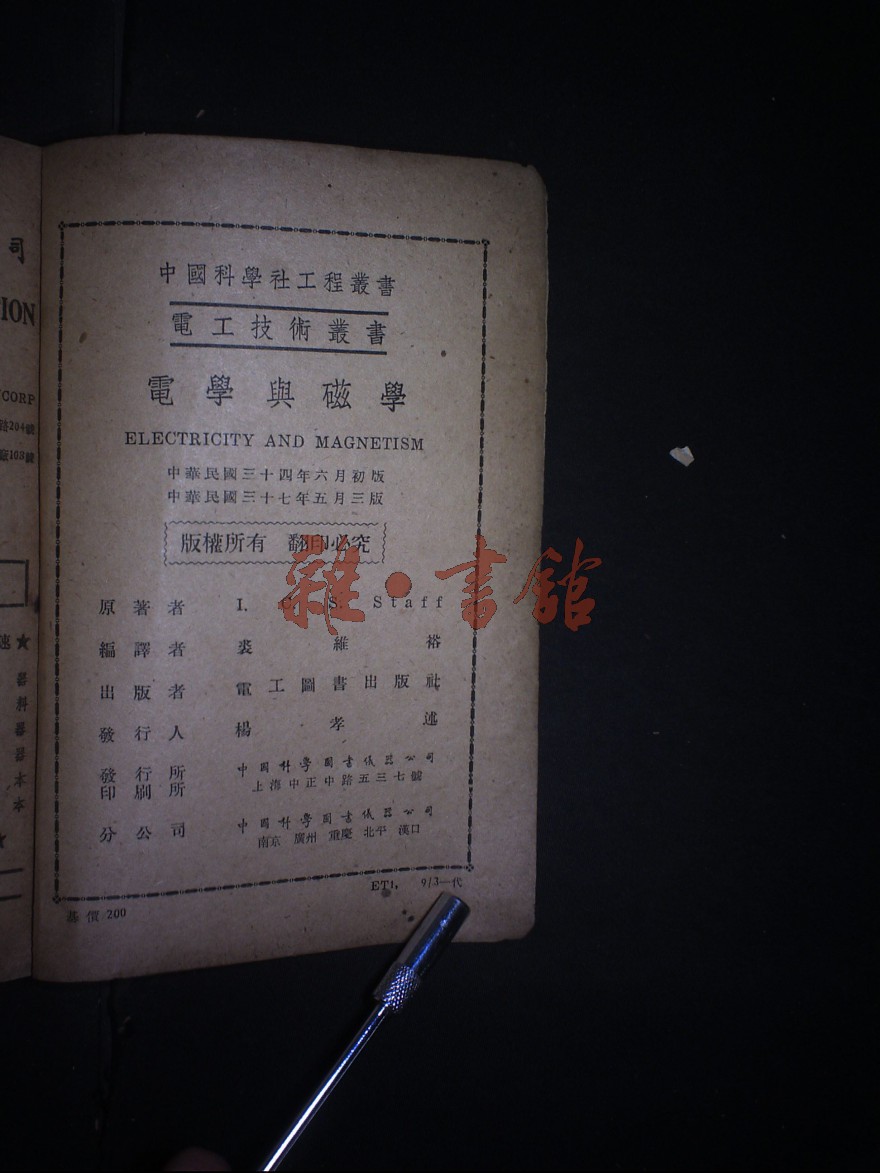 中國科學社工程叢書
電工技術叢書
電學與磁學
ELECTRICITY AND MAGNETISM
中華民國三十四年六月初版
中華民國三十七年五月三版
版權所有 翻印必究
雜·書館
原著者 I. C. S. Staff
編譯者 裘維裕
出版者 電工圖書出版社
發行人 楊孝述
發行所 中國科學圖書儀器公司
印刷所 上海中正中路五三七號
分公司 中國科學圖書儀器公司
南京 廣州 重慶 北平 漢口
ET1, 9/3—代
基價 200
司
ION
CORP
路204號
★